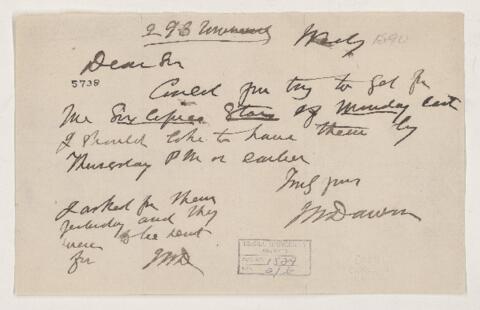 293 University
Wedy 1890
Dear Sir
5738
Could you try to get for
me Six Copies Star of Monday last
I should like to have them by
Thursday P.M. or earlier
Truly yours
JWDawson
I asked for them
yesterday and they
were to be sent
for
JWD
McGILL UNIVERSITY
ARCHIVES
ACC. NO. 1529
REF. 2/6